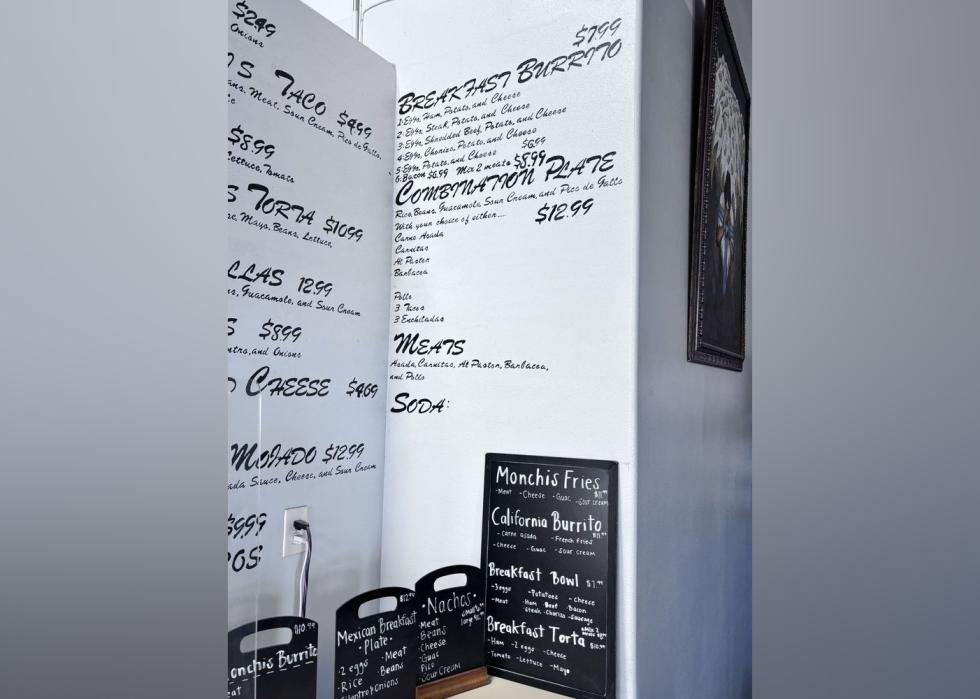 $2.49
Onions
S TACO $4.99
ans, Meat, Sour Cream, Pico de Gallo,
$8.99
Lettuce, Tomato
S TORTA $10.99
se, Mayo, Beans, Lettuce
LLAS 12.99
s, Guacamole, and Sour Cream
S $8.99
ntro, and Onions
CHEESE $4.69
MOJADO $12.99
ada Sauce, Cheese, and Sour Cream
$9.99
POS
$7.99
BREAKFAST BURRITO
1:Eggs, Ham, Potato, and Cheese
2:Eggs, Steak, Potato, and Cheese
3:Eggs, Shredded Beef, Potato, and Cheese
4:Eggs, Chorizo, Potato, and Cheese
5:Eggs, Potato, and Cheese $6.99
6:Bacon $6.99 Mix 2 meats $8.99
COMBINATION PLATE
Rice, Beans, Guacamole, Sour Cream, and Pico de Gallo
With your choice of either... $12.99
Carne Asada
Carnitas
Al Pastor
Barbacoa
Pollo
3 Tacos
3 Enchiladas
MEATS
Asada, Carnitas, Al Pastor, Barbacoa,
and Pollo
SODA:
Monchis Fries
-Meat -Cheese -Guac -Sour cream
California Burrito
-Carne asada -French fries
-Cheese -Guac -Sour cream
Breakfast Bowl
-3eggs -Potatoes -Cheese
-Meat -Ham -Beef -Bacon
-Steak -Chorizo -Sausage
Breakfast Torta
-Ham -2 eggs -Cheese
-Tomato -Lettuce -Mayo
•Nachos•
-Meat
-Beans
-Cheese
-Guac
-Pico
-Sour Cream
$12.99
Mexican Breakfast
•Plate•
-2 eggs -Meat
-Rice -Beans
-Cilantro & onions
$10.99
onchis Burrito
eat